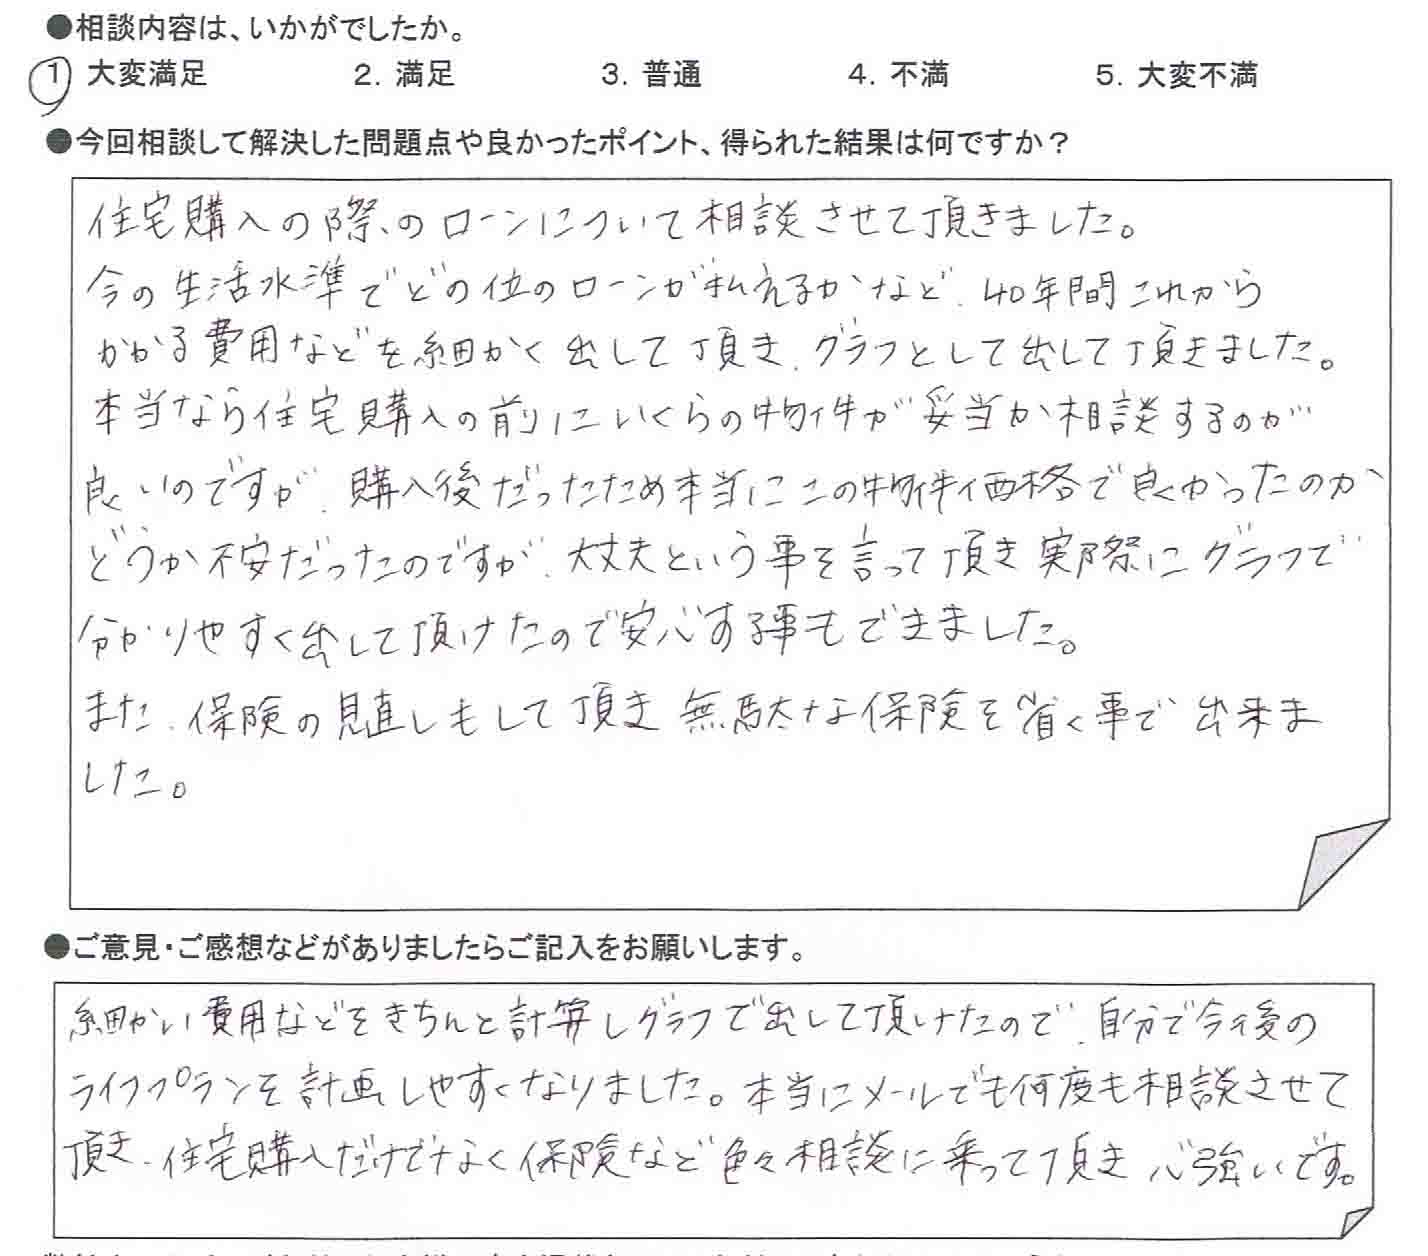 ●相談内容は、いかがでしたか。
1 大変満足 2. 満足 3. 普通 4. 不満 5. 大変不満
●今回相談して解決した問題点や良かったポイント、得られた結果は何ですか？
住宅購入の際のローンについて相談させて頂きました。
今の生活水準でどの位のローンが払えるかなど、40年間これから
かかる費用などを細かく出して頂き、グラフとして出して頂きました。
本当なら住宅購入の前にいくらの物件が妥当か相談するのが
良いのですが、購入後だったため本当にこの物件価格で良くかったのか
どうか不安だったのですが、大丈夫という事を言って頂き実際にグラフで
分かりやすく出して頂けたので安心する事もできました。
また、保険の見直しもして頂き無駄な保険を省く事で出来ま
した。
●ご意見・ご感想などがありましたらご記入をお願いします。
細かい費用などをきちんと計算しグラフで出して頂けたので、自分で今後の
ライフプランを計画しやすくなりました。本当にメールでも何度も相談させて
頂き、住宅購入だけでなく保険など色々相談に乗って頂き心強いです。